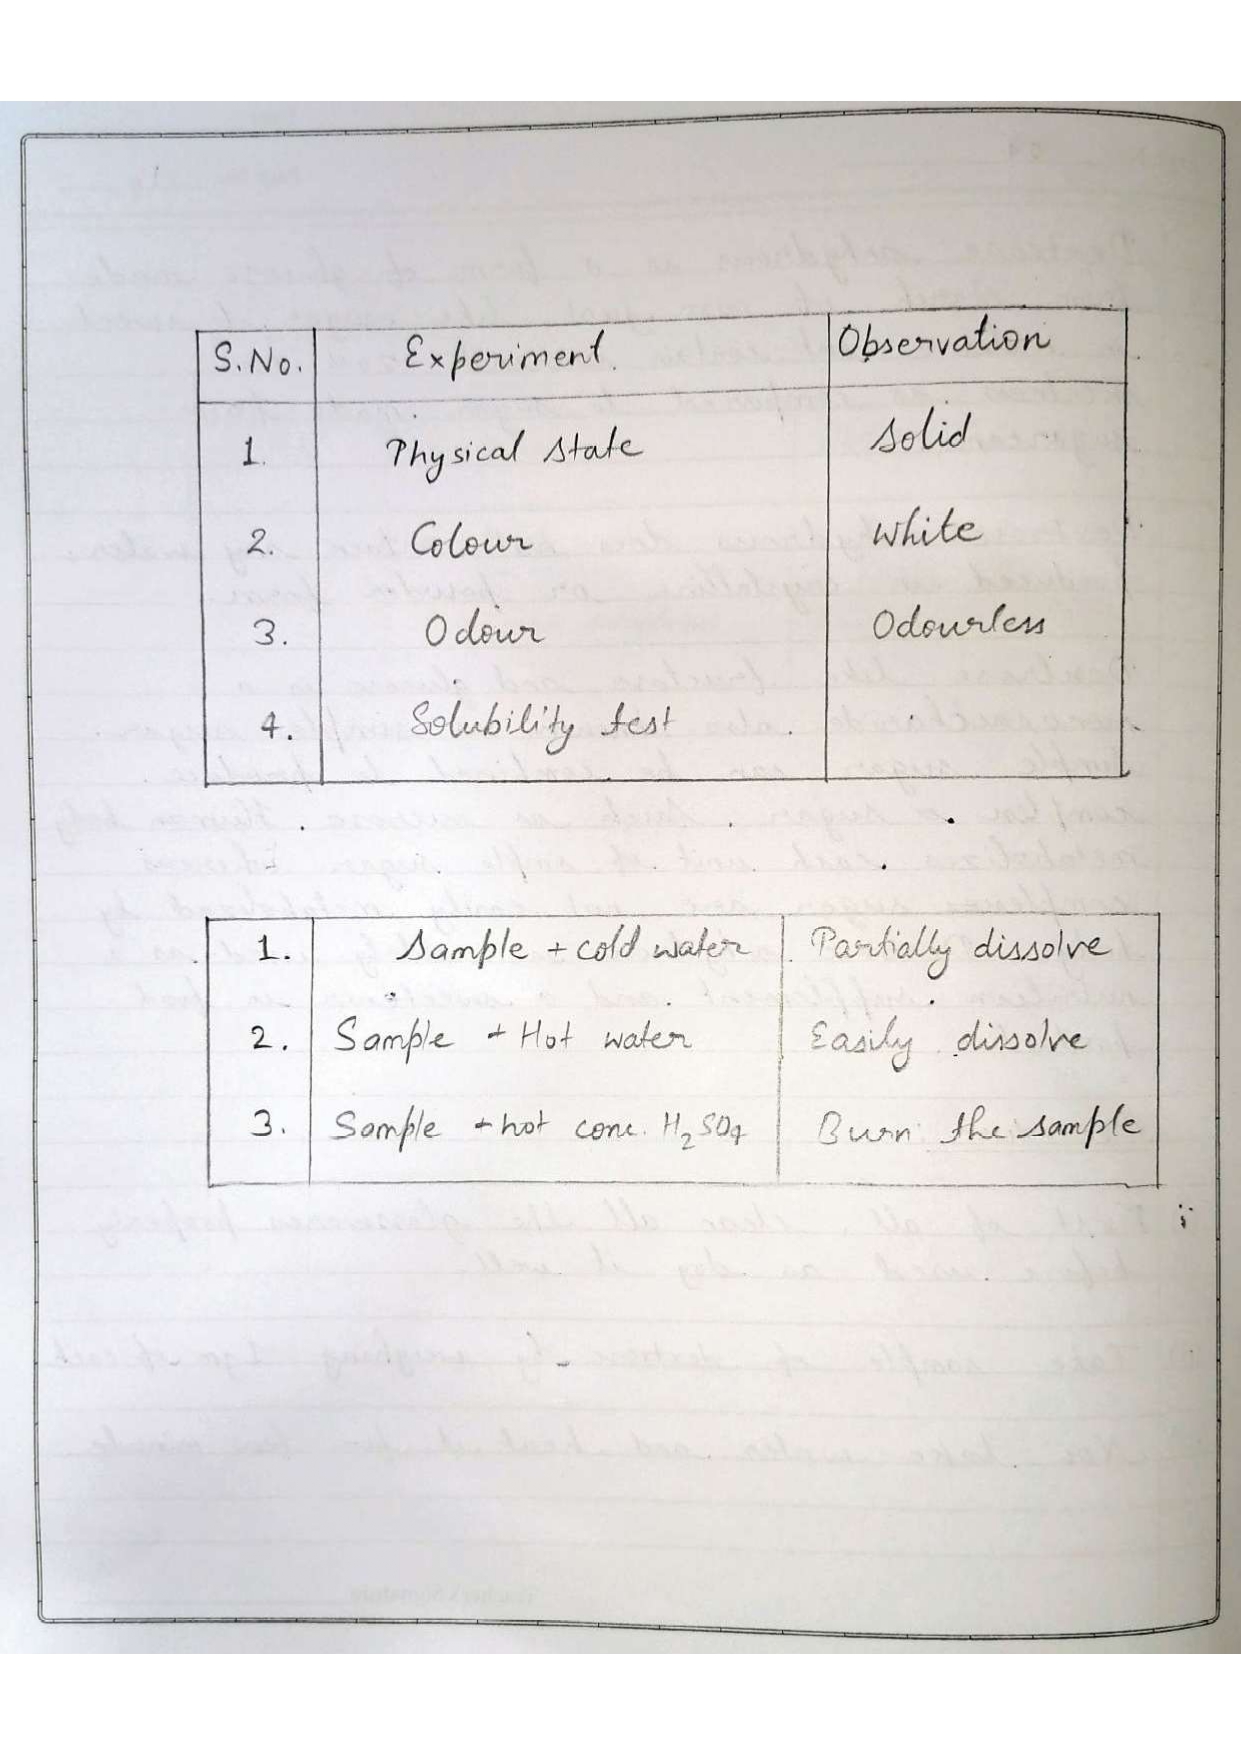 S.No. Experiment. Observation
1. Physical state solid
2. Colour white
3. Odour Odourless
4. Solubility test
1. Sample + cold water Partially dissolve
2. Sample + Hot water Easily dissolve
3. Sample + hot conc. H₂SO₄ Burn the sample